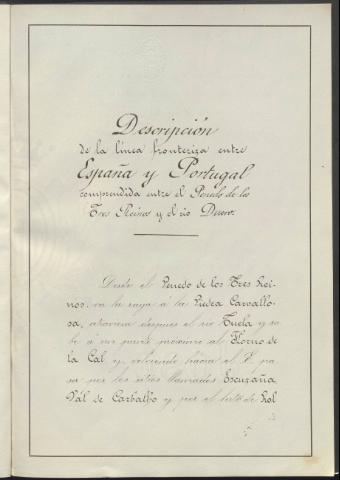 Descripción
de la línea fronteriza entre
España y Portugal
comprendida entre el Penedo de los
Tres Reinos y el río Duero.
Desde el Penedo de los Tres Rei-
nos, va la raya á la Piedra Carvallo-
sa, atraviesa despues el río Tuela y su-
be á un punto próximo al Horno de
la Cal y, volviendo hácia el E. pa-
sa por los sitios llamados Escuzaña,
Val de Carballo y por el de